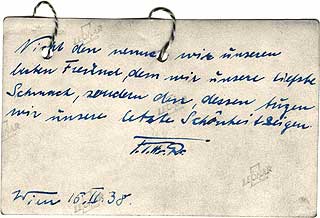 Nicht den nennen wir unseren
besten Freund, dem wir unsere tiefste
Schmach, sondern den, dessen Augen
wir unsere letzte Schönheit zeigen
Wien 16.II.38.